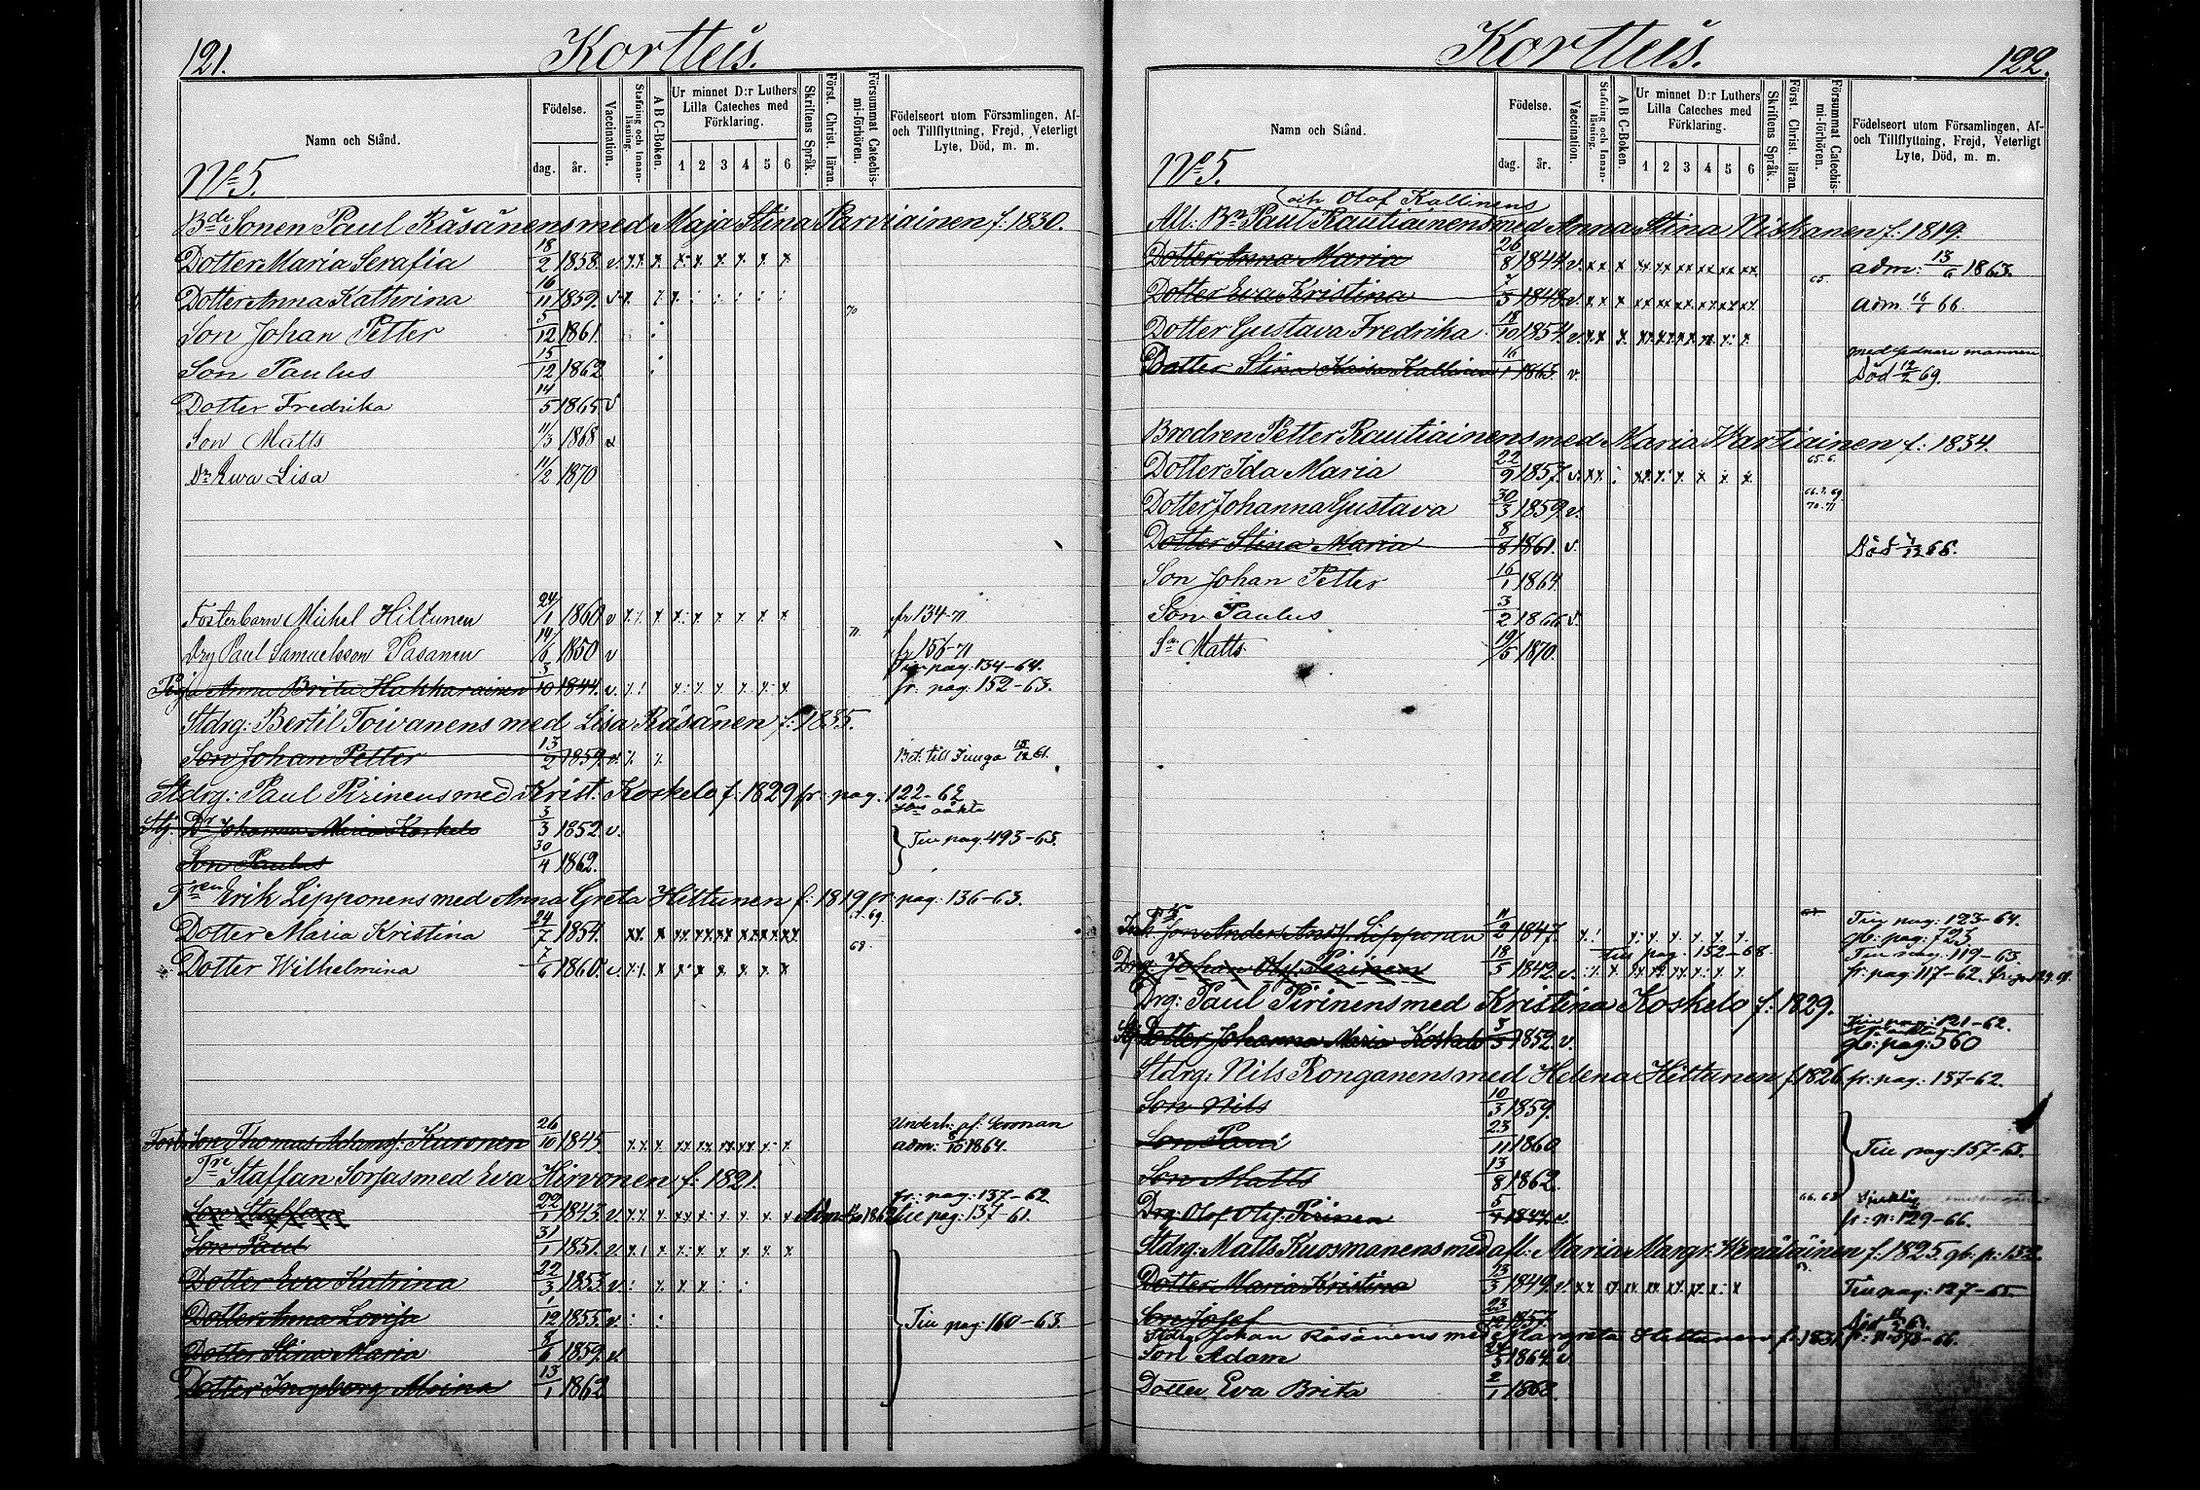 121.
Kortteis.
Namn och Stånd.
Födelse.
dag.
år.
Vaccination.
Stafning och Innan-läsning.
A B C-Boken.
Ur minnet D:r Luthers Lilla Cateches med Förklaring.
1 2 3 4 5 6
Skriftens Språk.
Först. Christ. läran.
Försummat Catechis-mi-förhören.
Födelseort utom Församlingen, Af- och Tillflyttning, Frejd, Veterligt Lyte, Död, m. m.
No 5.
Bde Sonen Paul Räsänens med Maja Stina Parviainen f. 1830.
Dotter Maria Serafia 18/2 1858. v.
Dotter Anna Kathrina 16/11 1859. v
70
Son Johan Petter 5/12 1861.
Son Paulus 15/12 1862
Dotter Fredrika 14/5 1865 v
Son Matts 11/3 1868 v
Dr Ewa Lisa 11/2 1870
Fosterbarn Michel Hiltunen 24/1 1860 v fr 134-71
Drg Paul Samuelsson Pasanen 14/6 1850 v 71 fr 156-71
Tin pag: 134-64.
Piga Anna Brita Hakkarainen 5/10 1844. v. fr. pag. 152-63.
Stdrg: Bertil Toivanens med Lisa Räsänen f: 1835.
Son Johan Petter 13/2 1859. v.
Stdrg: Paul Pirinens med Krist. Koskelo f. 1829 fr. pag. 122-62
Stj. Dr Johanna Maria Koskelo 3/3 1852 v. Tin pag. 493-63.
Son Paulus 30/4 1862.
Erik Lipponens med Anna Greta Hiltunen f: 1819 fr. pag. 136-63.
Dotter Maria Kristina 24/7 1854.
68.
Dotter Wilhelmina 7/6 1860. v.
Son Thomas Adamsf. Kuronen 26/10 1845. adm: 1864.
Staffan Sorsas med Eva Hirvonen f: 1821.
fr: pag: 137-62
Son Staffan 22/1 1843. v. Tin pag: 137-61.
Son Paul 31/1 1851. v.
Dotter Eva Katrina 22/3 1853. v.
Dotter Anna Lovisa 1/12 1855. v. Tin pag: 160-63.
Dotter Stina Maria 8/6 1859. v.
Dotter Ingeborg 13/1 1862
Kortteis.
122.
Namn och Stånd.
Födelse.
dag.
år.
Vaccination.
Stafning och Innan-läsning.
A B C-Boken.
Ur minnet D:r Luthers Lilla Cateches med Förklaring.
1 2 3 4 5 6
Skriftens Språk.
Först. Christ. läran.
Försummat Catechis-mi-förhören.
Födelseort utom Församlingen, Af- och Tillflyttning, Frejd, Veterligt Lyte, Död, m. m.
No 5.
och Olof Kallinens
Afl: Bn Paul Rautiainens med Anna Stina Niskanen f: 1819.
Dotter Anna Maria 26/8 1844 v. adm: 1863.
65.
Dotter Eva Kristina 1848. v. adm 66.
Dotter Gustava Fredrika 18/10 1854. v.
med sednare mannen
Dotter Stina Kaisa Kallinen 16/1 1865. v. Död 69.
Brodren Petter Rautiainens med Maria Wartiainen f: 1834.
Dotter Ida Maria 22/9 1857. v.
Dotter Johanna Gustava 30/3 1859. v. 70.71
Dotter Stina Maria 8/8 1861. v. Död
Son Johan Petter 16/1 1864
Son Paulus 3/2 1866 v.
Sn Matts 19/5 1870.
Tin pag: 123-64.
Lipponen 11/2 1847. gb: pag: 723
till pag: 152-68
Tin pag: 119-63
Drg Johan Olsf. Pirinen 18/5 1842. v. fr: pag: 117-62.
Drg: Paul Pirinens med Kristina Koskelo f: 1829.
Tin pag: 121-62.
Stj Dotter Johanna Maria Koskelo 3/3 1852. v. gb: pag: 560
Stdrg: Nils Ronganens med Helena Hiltunen f. 1826 fr: pag: 137-62.
Son Nils 10/3 1859.
Son Paul 23/11 1860
Tin pag: 157-63.
Son Matts 13/8 1862.
Drg Olof Olsf. Pirinen 1844. v. fr: p: 129-66.
Stdrg: Matts Kuosmanens med afl: Maria Margr. f: 1825. gb. p: 132.
Dotter Maria Kristina 1849. v. Tin pag: 127-65
Son Josef 1857.
Stdrg Johan Räsänens med Margreta Hiltunen f: 1831.
Son Adam 1864 v.
Dotter Eva Brita 2/1 1868.